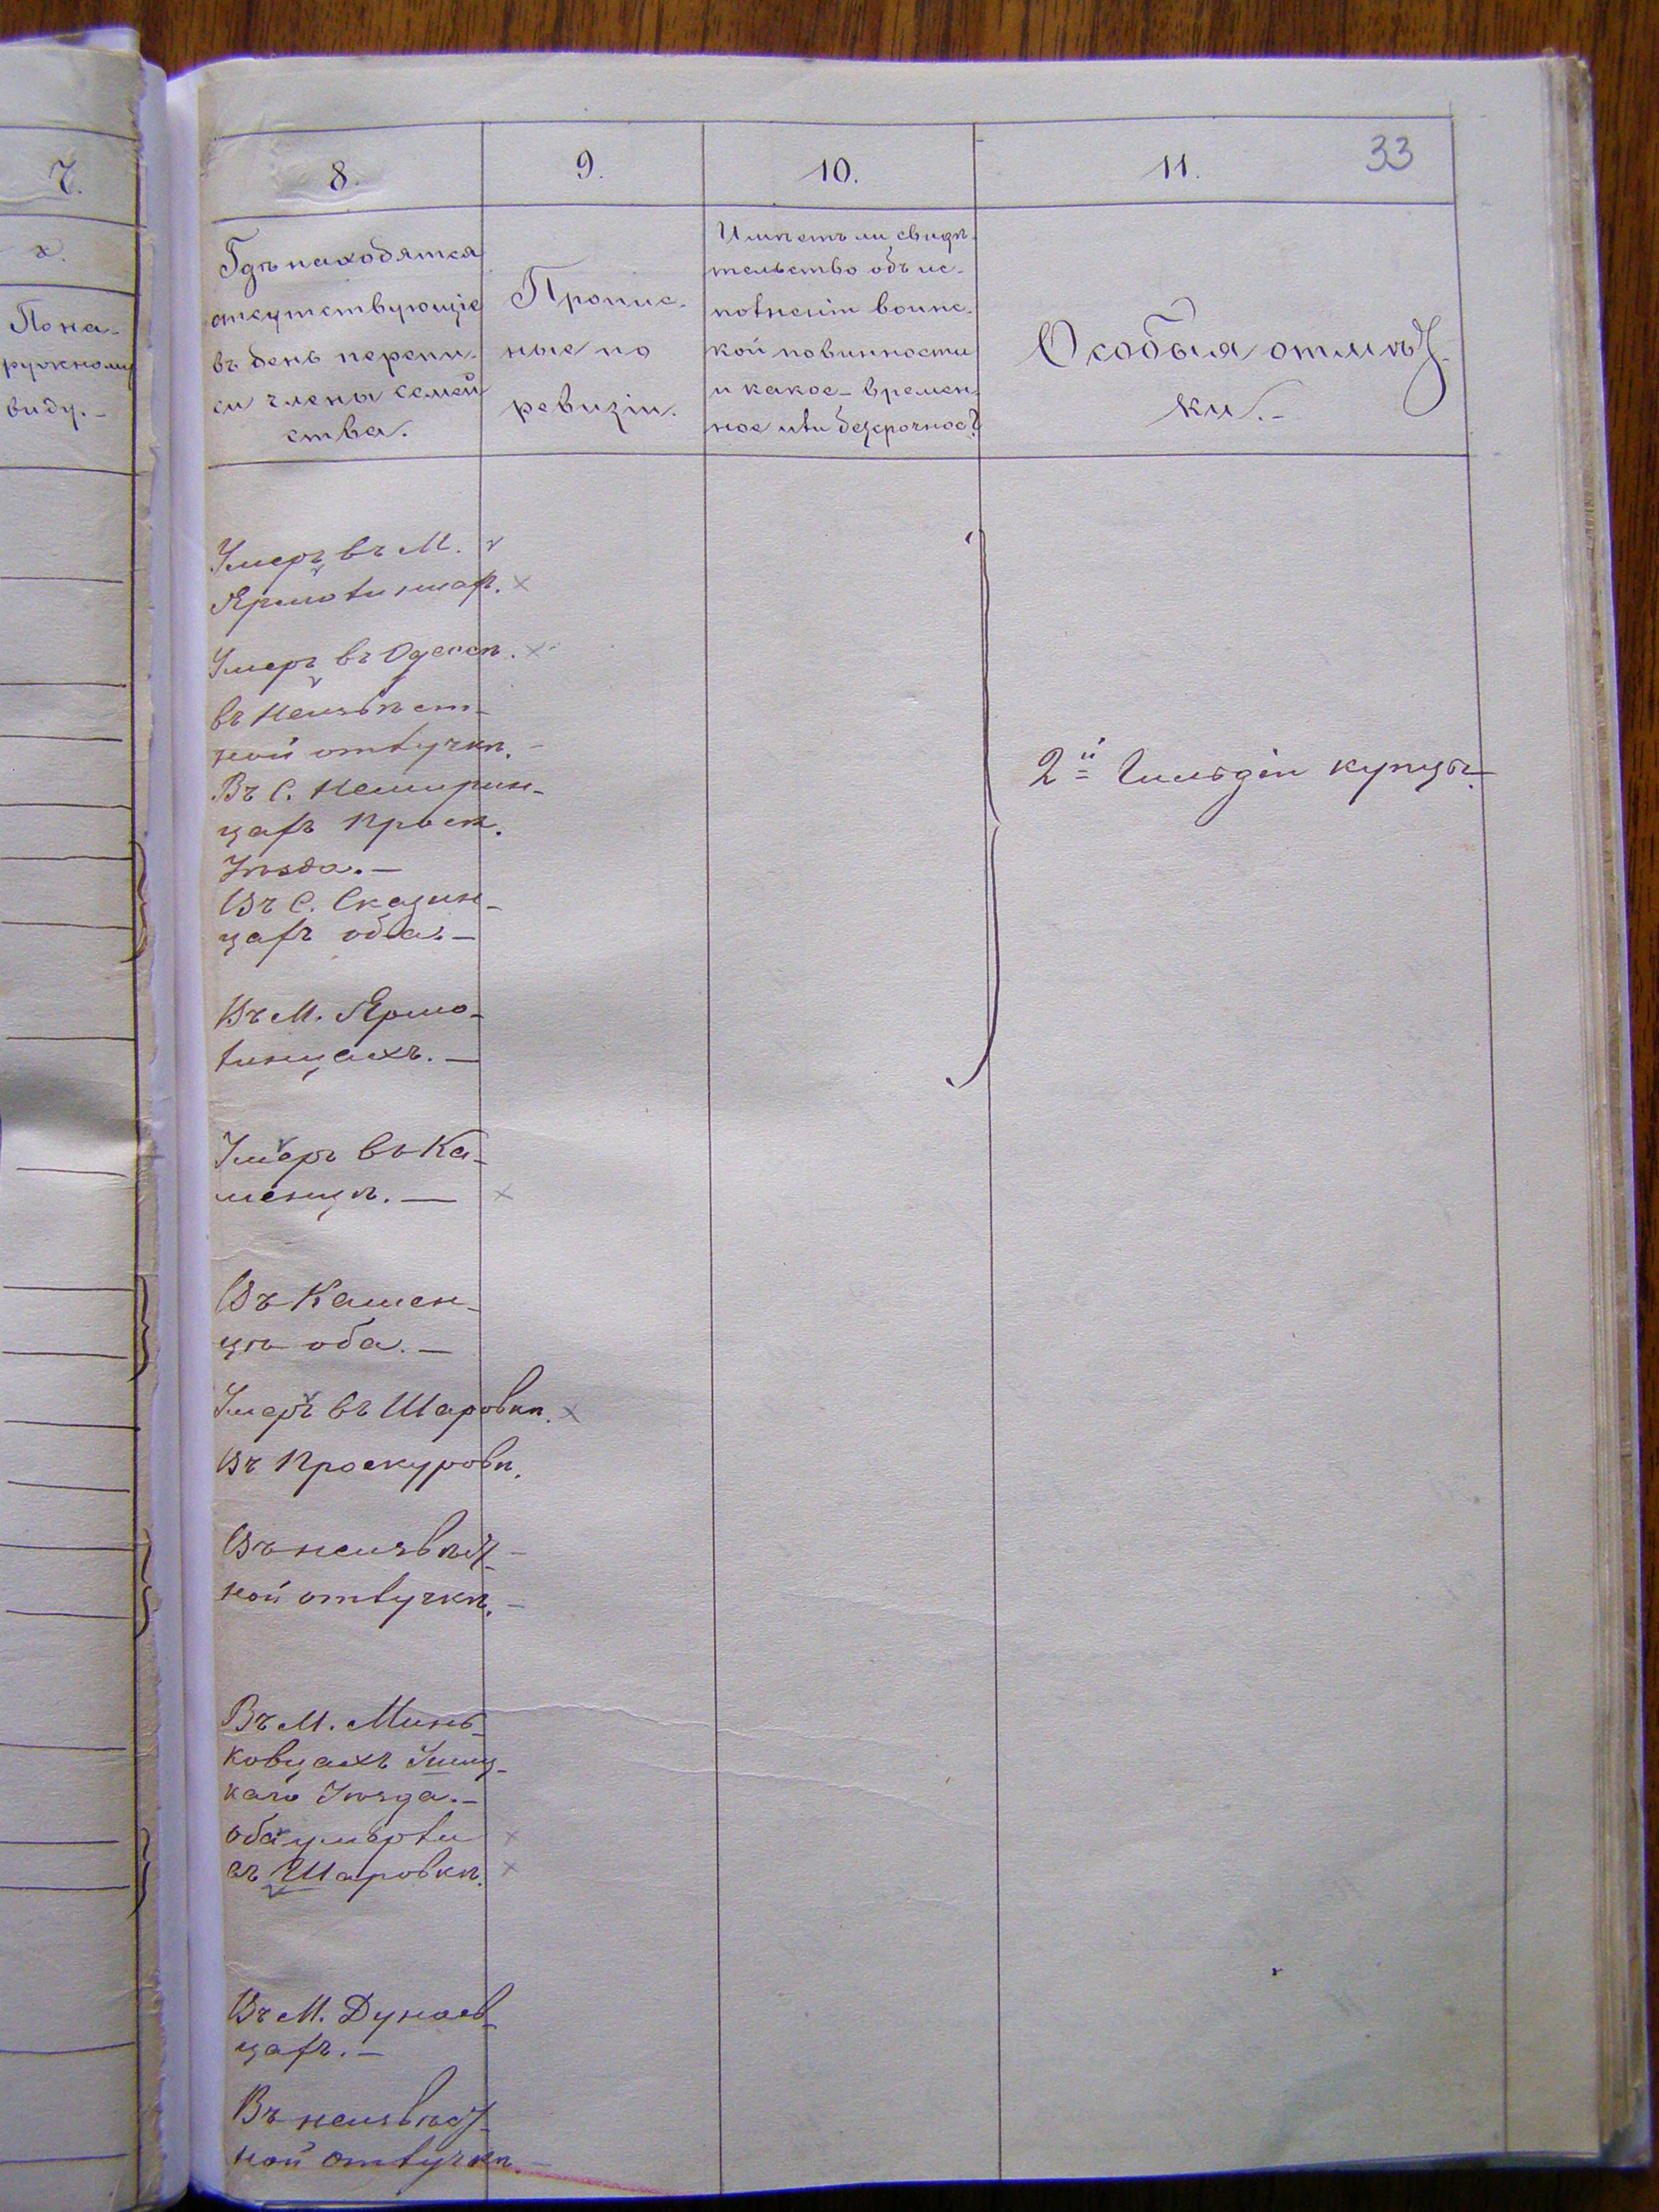 7.
х.
По на-
ружному
виду.-
33
8.
9.
10.
11.
Гдѣ находятся
отсутствующіе
въ день перепи-
си члены семей
ства.
Пропис-
ные по
ревизіи.
Имѣетъ ли свидѣ-
тельство объ ис-
полненіи воинс-
кой повинности
и какое - времен-
ное или безсрочное?
Особыя отмѣт-
ки.-
Умеръ въ М.
Ярмолинцах.
Умеръ въ Одессѣ.
въ Неизвѣст-
ной отлучкѣ.
Въ С. Немирин-
цахъ Проск.
Уѣзда.-
Въ С. Сказин-
цахъ оба.-
Въ М. Ярмо-
линцахъ.-
2й Гильдіи купцы.
Умеръ въ Ка-
менцѣ.-
Въ Камен-
цѣ оба.-
Умеръ въ Шаровкѣ.
Въ Проскуровѣ.
Въ неизвѣст-
ной отлучкѣ.-
Въ М. Минь-
ковцахъ Ушиц-
каго Уѣзда.-
оба умерли
въ Шаровкѣ.
Въ М. Дунаев-
цахъ.-
Въ неизвѣст-
ной отлучкѣ.-